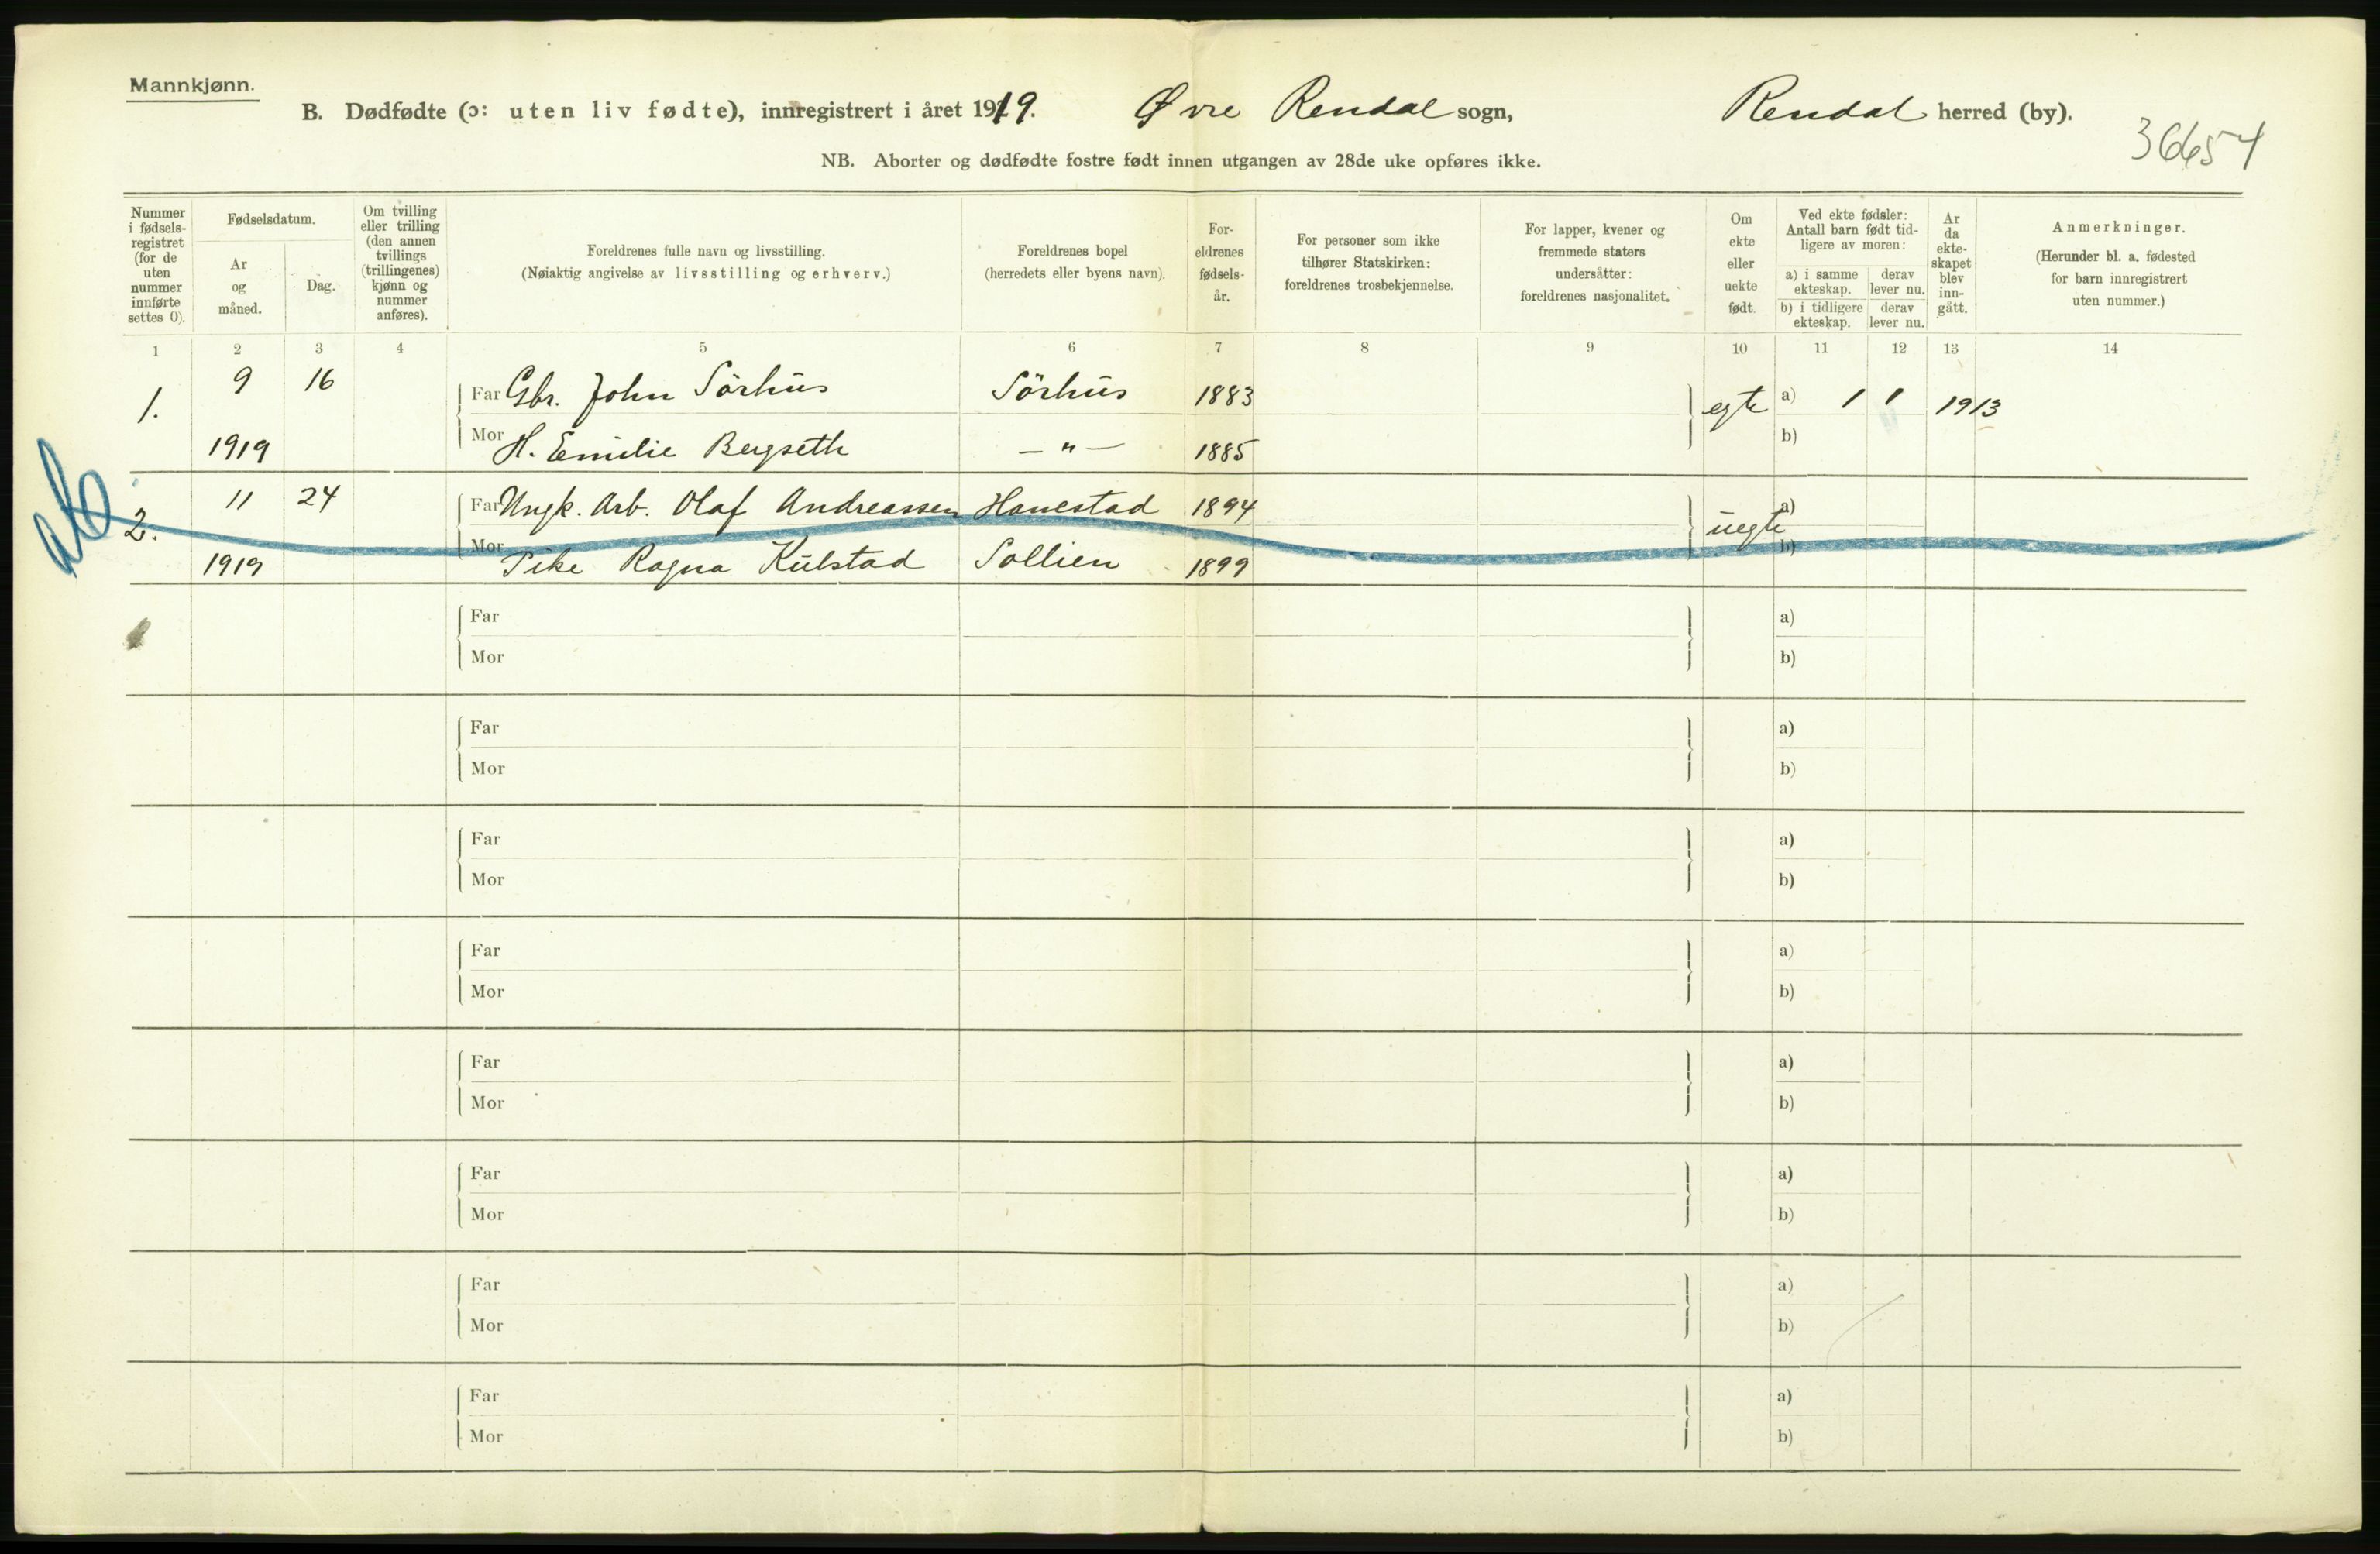 Mannkjønn.
B. Dødfødte (ɔ: uten liv fødte), innregistrert i året 1919. Øvre Rendal sogn, Rendal herred (by).
36654
NB. Aborter og dødfødte fostre født innen utgangen av 28de uke opføres ikke.
Nummer i fødsels-registret (for de uten nummer innførte settes 0).
Fødselsdatum.
År og måned.
Dag.
Om tvilling eller trilling (den annen tvillings (trillingenes) kjønn og nummer anføres).
Foreldrenes fulle navn og livsstilling.
(Nøiaktig angivelse av livsstilling og erhverv.)
Foreldrenes bopel
(herredets eller byens navn).
For-eldrenes fødsels-år.
For personer som ikke tilhører Statskirken: foreldrenes trosbekjennelse.
For lapper, kvener og fremmede staters undersåtter: foreldrenes nasjonalitet.
Om ekte eller uekte født.
Ved ekte fødsler: Antall barn født tid-ligere av moren:
a) i samme ekteskap.
derav lever nu.
b) i tidligere ekteskap.
derav lever nu.
År da ekte-skapet blev inn-gått.
Anmerkninger.
(Herunder bl. a. fødested for barn innregistrert uten nummer.)
1 2 3 4 5 6 7 8 9 10 11 12 13 14
1. 9 16 Far Gbr. John Sörhus Sörhus 1883 egte a) 1 1 1913
1919 Mor H. Emilie Bergseth — " — 1885 b)
ab
2. 11 24 Far Ungk. Arb. Olaf Andreassen Hanestad 1894 uegte a)
1919 Mor Pike Ragna Kulstad Sollien 1899 b)
Far a)
Mor b)
Far a)
Mor b)
Far a)
Mor b)
Far a)
Mor b)
Far a)
Mor b)
Far a)
Mor b)
Far a)
Mor b)
Far a)
Mor b)